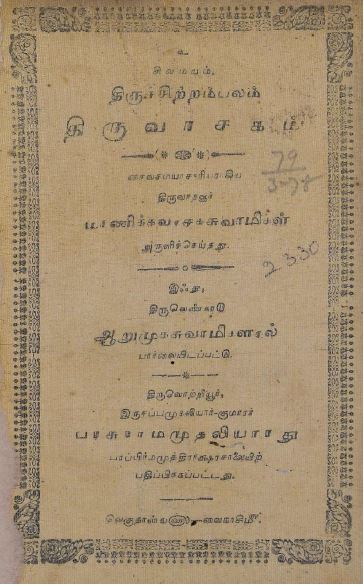 உ
சிவமயம்.
திருச்சிற்றம்பலம்
திருவாசகம்.
79
3-78
சைவசமயாசாரியராகிய
திருவாதவூர்
மாணிக்கவாசகசுவாமிகள்
அருளிச்செய்தது.
2330
இஃது,
திருவெண்காடு
ஆறுமுகசுவாமிகளால்
பார்வையிடப்பட்டு.
திருவொற்றியூர்,
இருசப்பமுதலியார்-குமாரர்
பரசுராமமுதலியாரது
பதிப்பிக்கப்பட்டது.
வெகுதான்ய௵ வைகாசி௴